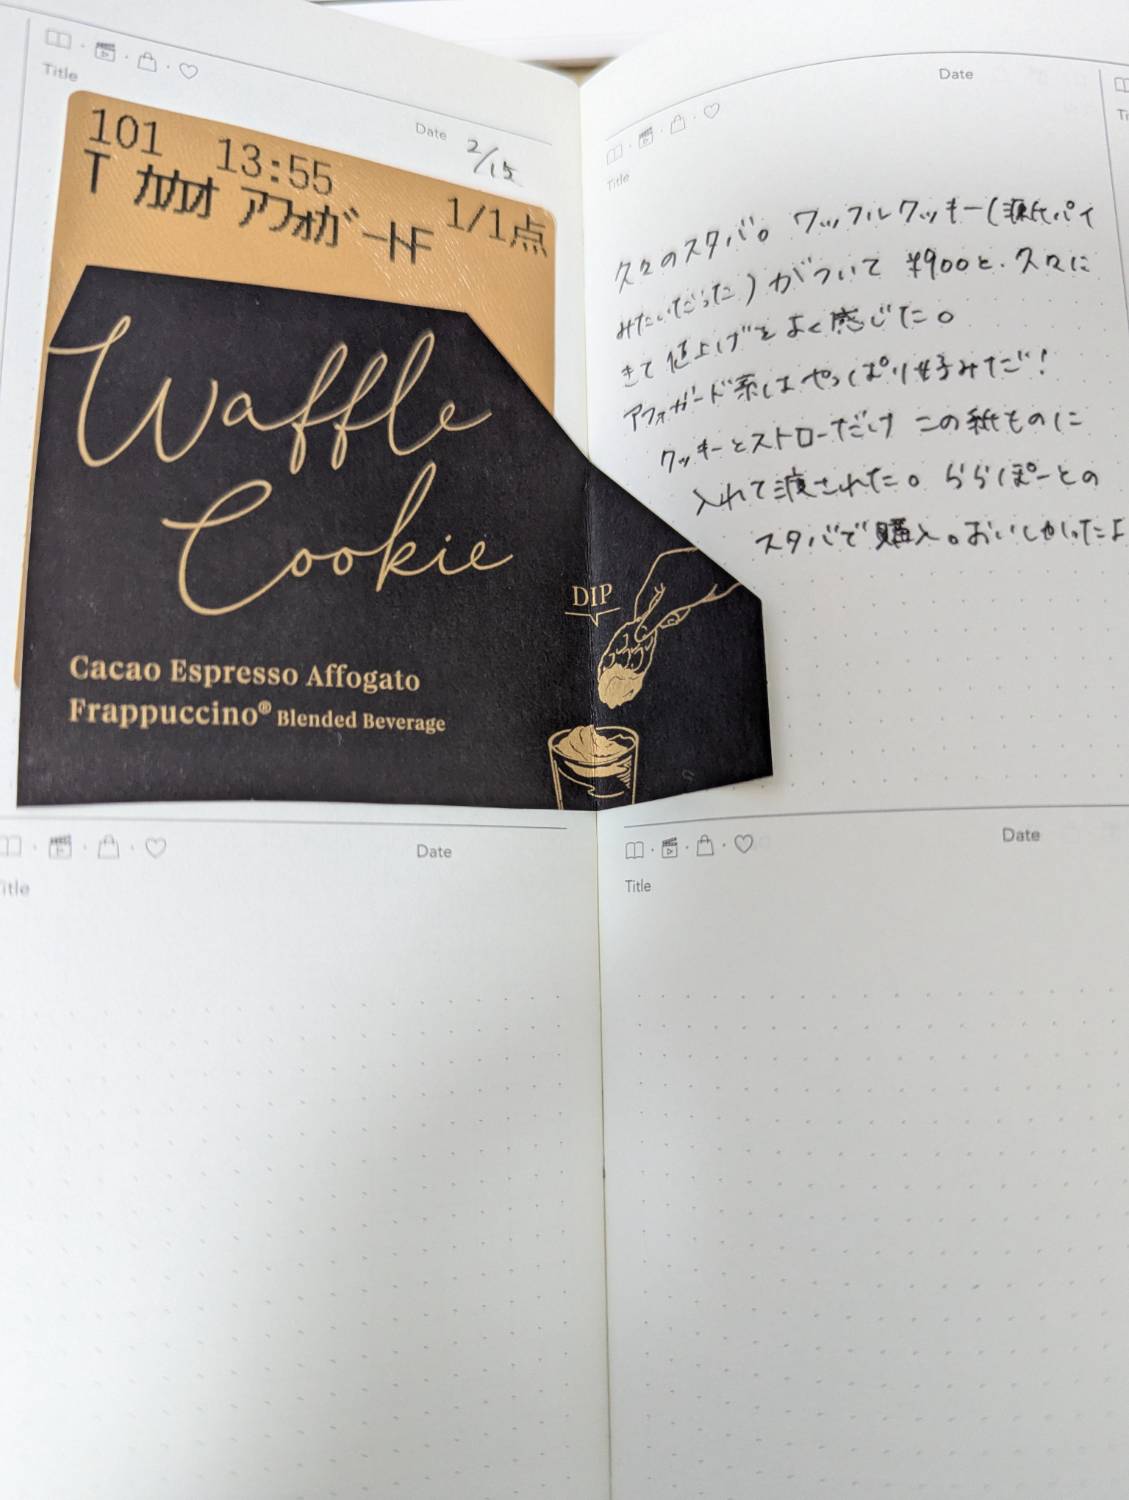 Title
Date 2/15
101 13:55
T カカオ アフォガートF 1/1点
Waffle
Cookie
DIP
Cacao Espresso Affogato
Frappuccino® Blended Beverage
Date
Title
久々のスタバ。ワッフルクッキー(源氏パイ
みたいだった)がついて ¥900と、久々に
きて値上げをよく感じた。
アフォガード系はやっぱり好みだ!
クッキーとストローだけ この紙ものに
入れて渡された。ららぽーとの
スタバで購入。おいしかったよ
Date
Title
Date
Title